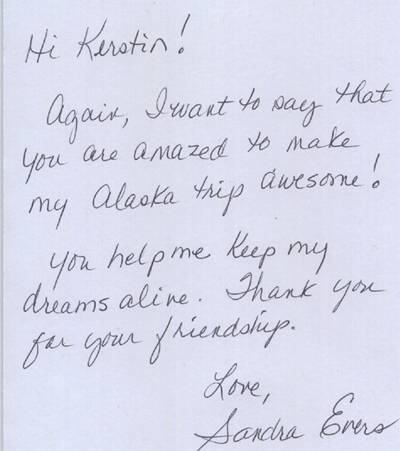 Hi Kerstin!
Again, I want to say that
you are amazed to make
my Alaska trip awesome!
You help me keep my
dreams alive. Thank you
for your friendship.
Love,
Sandra Evers